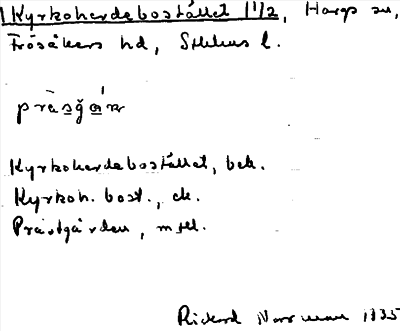 Kyrkoherdebostället 1 1/2, Hargs sn,
Frösåkers hd, Sthlms l.
präsgán
Kyrkoherdebostället, bek.
Kyrkoh. bost., ek.
Prästgården, mtl.
Rickard 1935